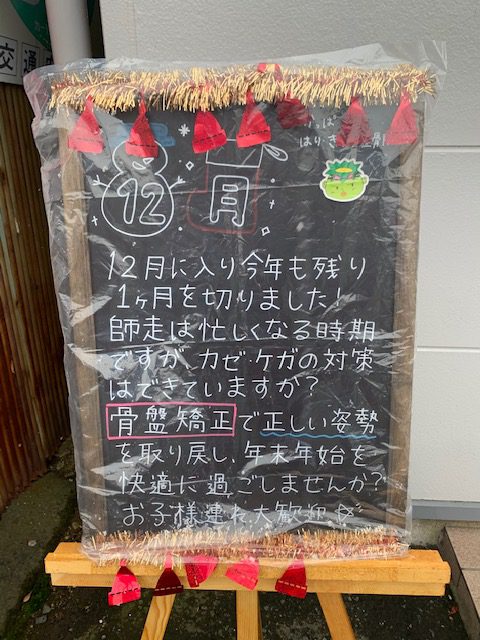 交通
12月
12月に入り今年も残り
1ヶ月を切りました!
師走は忙しくなる時期
ですが、カゼ・ケガの対策
はできていますか?
骨盤矯正で正しい姿勢
を取り戻し、年末年始を
快適に過ごしませんか?
お子様連れ大歓迎